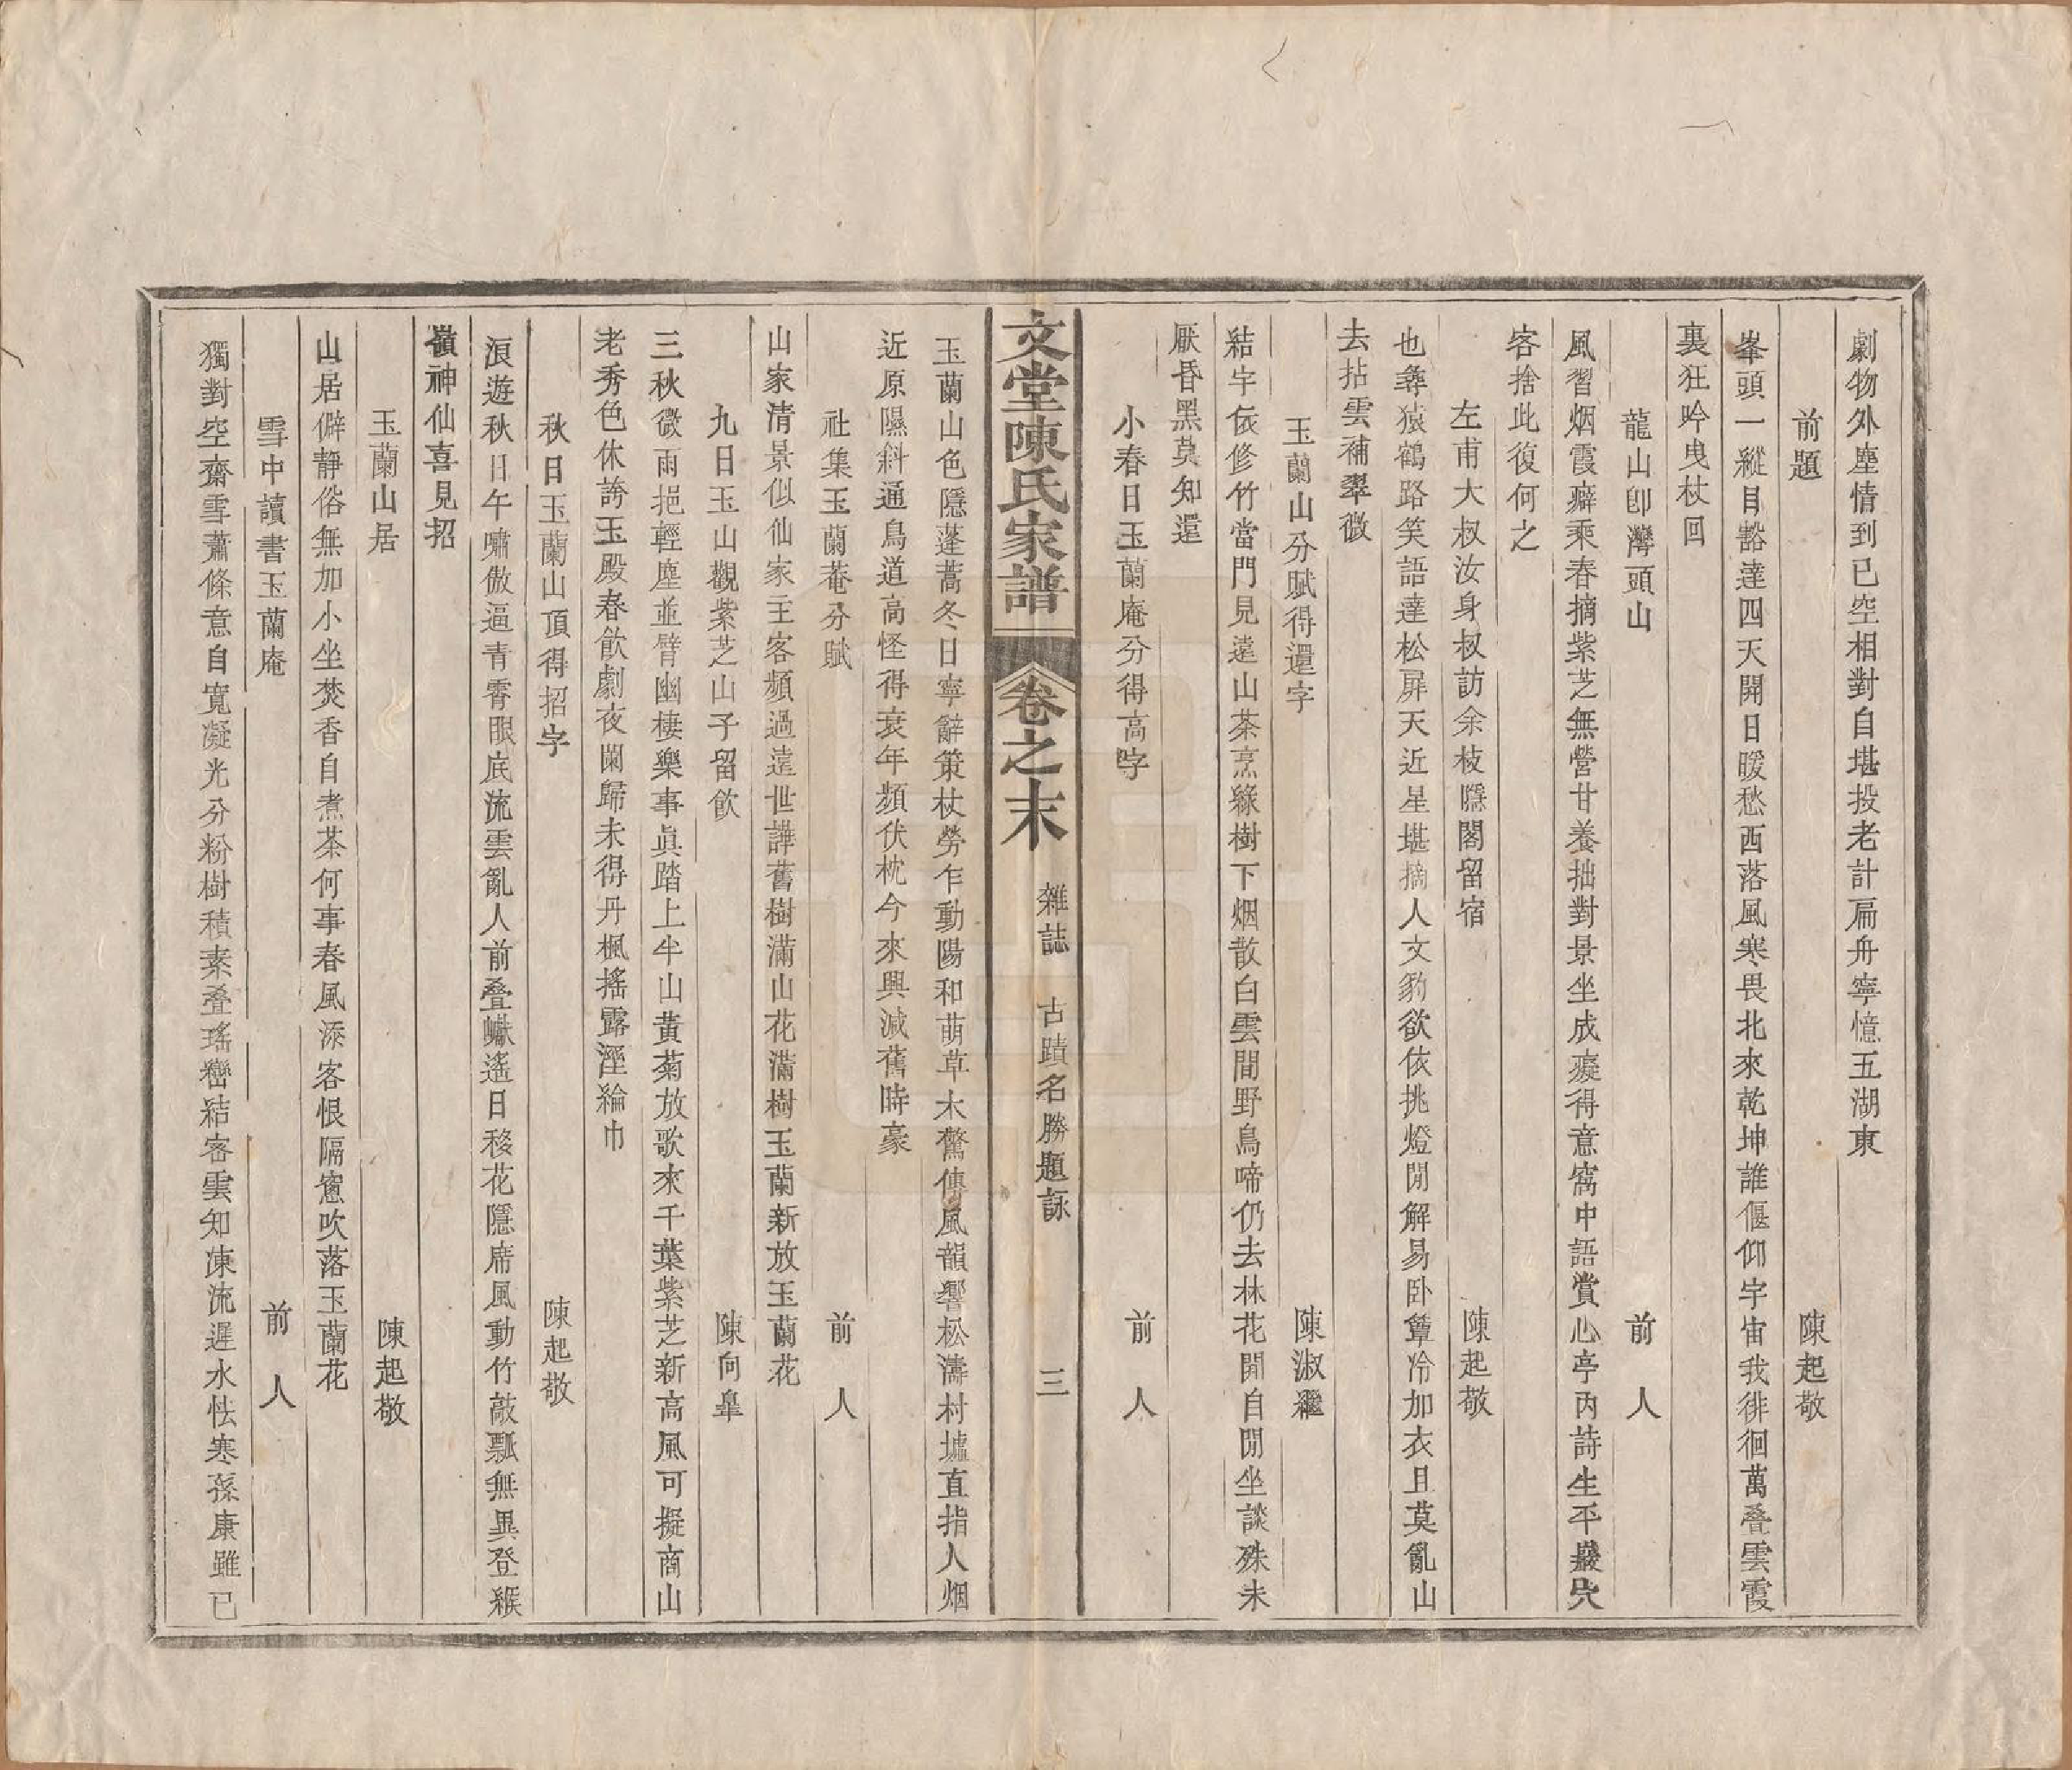 劇物外塵情到已空相對自堪投老計扁舟寧憶五湖東
前題　陳起敬
峯頭一縱目豁達四天開日暖愁西落風寒畏北來乾坤誰偃仰宇宙我徘徊萬叠雲霞
裏狂吟曳杖回
龍山卽灣頭山　前人
風習烟霞癖乘春摘紫芝無營甘養拙對景坐成癡得意窩中語賞心亭内詩生平巖穴
客捨此復何之
左甫大叔汝身叔訪余枝隱閣留宿　陳起敬
也彞猿鶴路笑語達松扉天近星堪摘人文豹欲依挑燈閒解易卧簟冷加衣且莫亂山
去拈雲補翠微
玉蘭山分賦得還字　陳淑繼
結宇依修竹當門見遠山茶烹綠樹下烟散白雲間野鳥啼仍去林花閒自閒坐談殊未
厭昏黑莫知還
小春日玉蘭庵分得高字　前人
文堂陳氏家譜　卷之末　雜誌　古蹟名勝題詠　三
玉蘭山色隱蓬蒿冬日寧辭策杖勞乍動陽和萌草木驚傳風韻響松濤村墟直指人烟
近原隰斜通鳥道高怪得衰年頻伏枕今來興減舊時豪
社集玉蘭菴分賦　前人
山家清景似仙家主客頻過遠世譁舊樹滿山花滿樹玉蘭新放玉蘭花
九日玉山觀紫芝山子留飲　陳向臯
三秋微雨挹輕塵並臂幽棲樂事眞踏上半山黃菊放歌來千葉紫芝新高風可擬商山
老秀色休誇玉殿春飲劇夜闌歸未得丹楓搖露溼綸巾
秋日玉蘭山頂得招字　陳起敬
浪遊秋日午嘯傲逼青霄眼底流雲亂人前叠巘遙日移花隱席風動竹敲瓢無異登緱
嶺神仙喜見招
玉蘭山居　陳起敬
山居僻靜俗無加小坐焚香自煮茶何事春風添客恨隔窻吹落玉蘭花
雪中讀書玉蘭庵　前人
獨對空齋雪蕭條意自寬凝光分粉樹積素叠瑤巒結密雲知凍流遲水怯寒孫康雖已